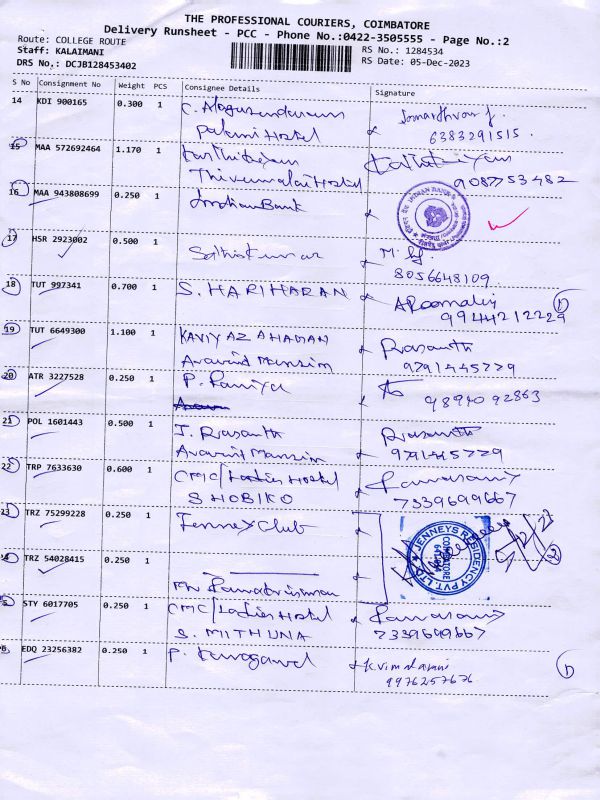 THE PROFESSIONAL COURIERS, COIMBATORE
Delivery Runsheet - PCC - Phone No.:0422-3505555 - Page No.:2
Route: COLLEGE ROUTE
Staff: KALAIMANI
DRS No.: DCJB128453402
RS No.: 1284534
RS Date: 05-Dec-2023
S No Consignment No Weight PCS Consignee Details Signature
14 KDI 900165 0.300 1 C. Alagusundaram
Palani Hostel 6383291515
15 MAA 572692464 1.170 1 Karthikeyan Karthikeyan
Thirumalai Hostel 9087753482
16 MAA 943808699 0.250 1 Indian Bank
INDIAN BANK
17 HSR 2923002 0.500 1 Sathiskumar
8056648109
18 TUT 997341 0.700 1 S. HARIHARAN
99442 12229 1
19 TUT 6649300 1.100 1 KAVIYAZHAHAN Prasanth
Aravind Mansion 9791445779
20 ATR 3227528 0.250 1 P. Ramya
9894092863
21 POL 1601443 0.500 1 J. Prasanth Prasanth
Aravind Mansion 9791445779
22 TRP 7633630 0.600 1 CMC/Ladies Hostel
SHOBIKO 7339699667
23 TRZ 75299228 0.250 1 Jenney Club
JENNEYS RESIDENCY PVT. LTD.
COIMBATORE
24 TRZ 54028415 0.250 1 2
Ramakrishnan
25 STY 6017705 0.250 1 CMC/Ladies Hostel
S. MITHUNA 7339699667
26 EDQ 23256382 0.250 1 P.
9976257676 1